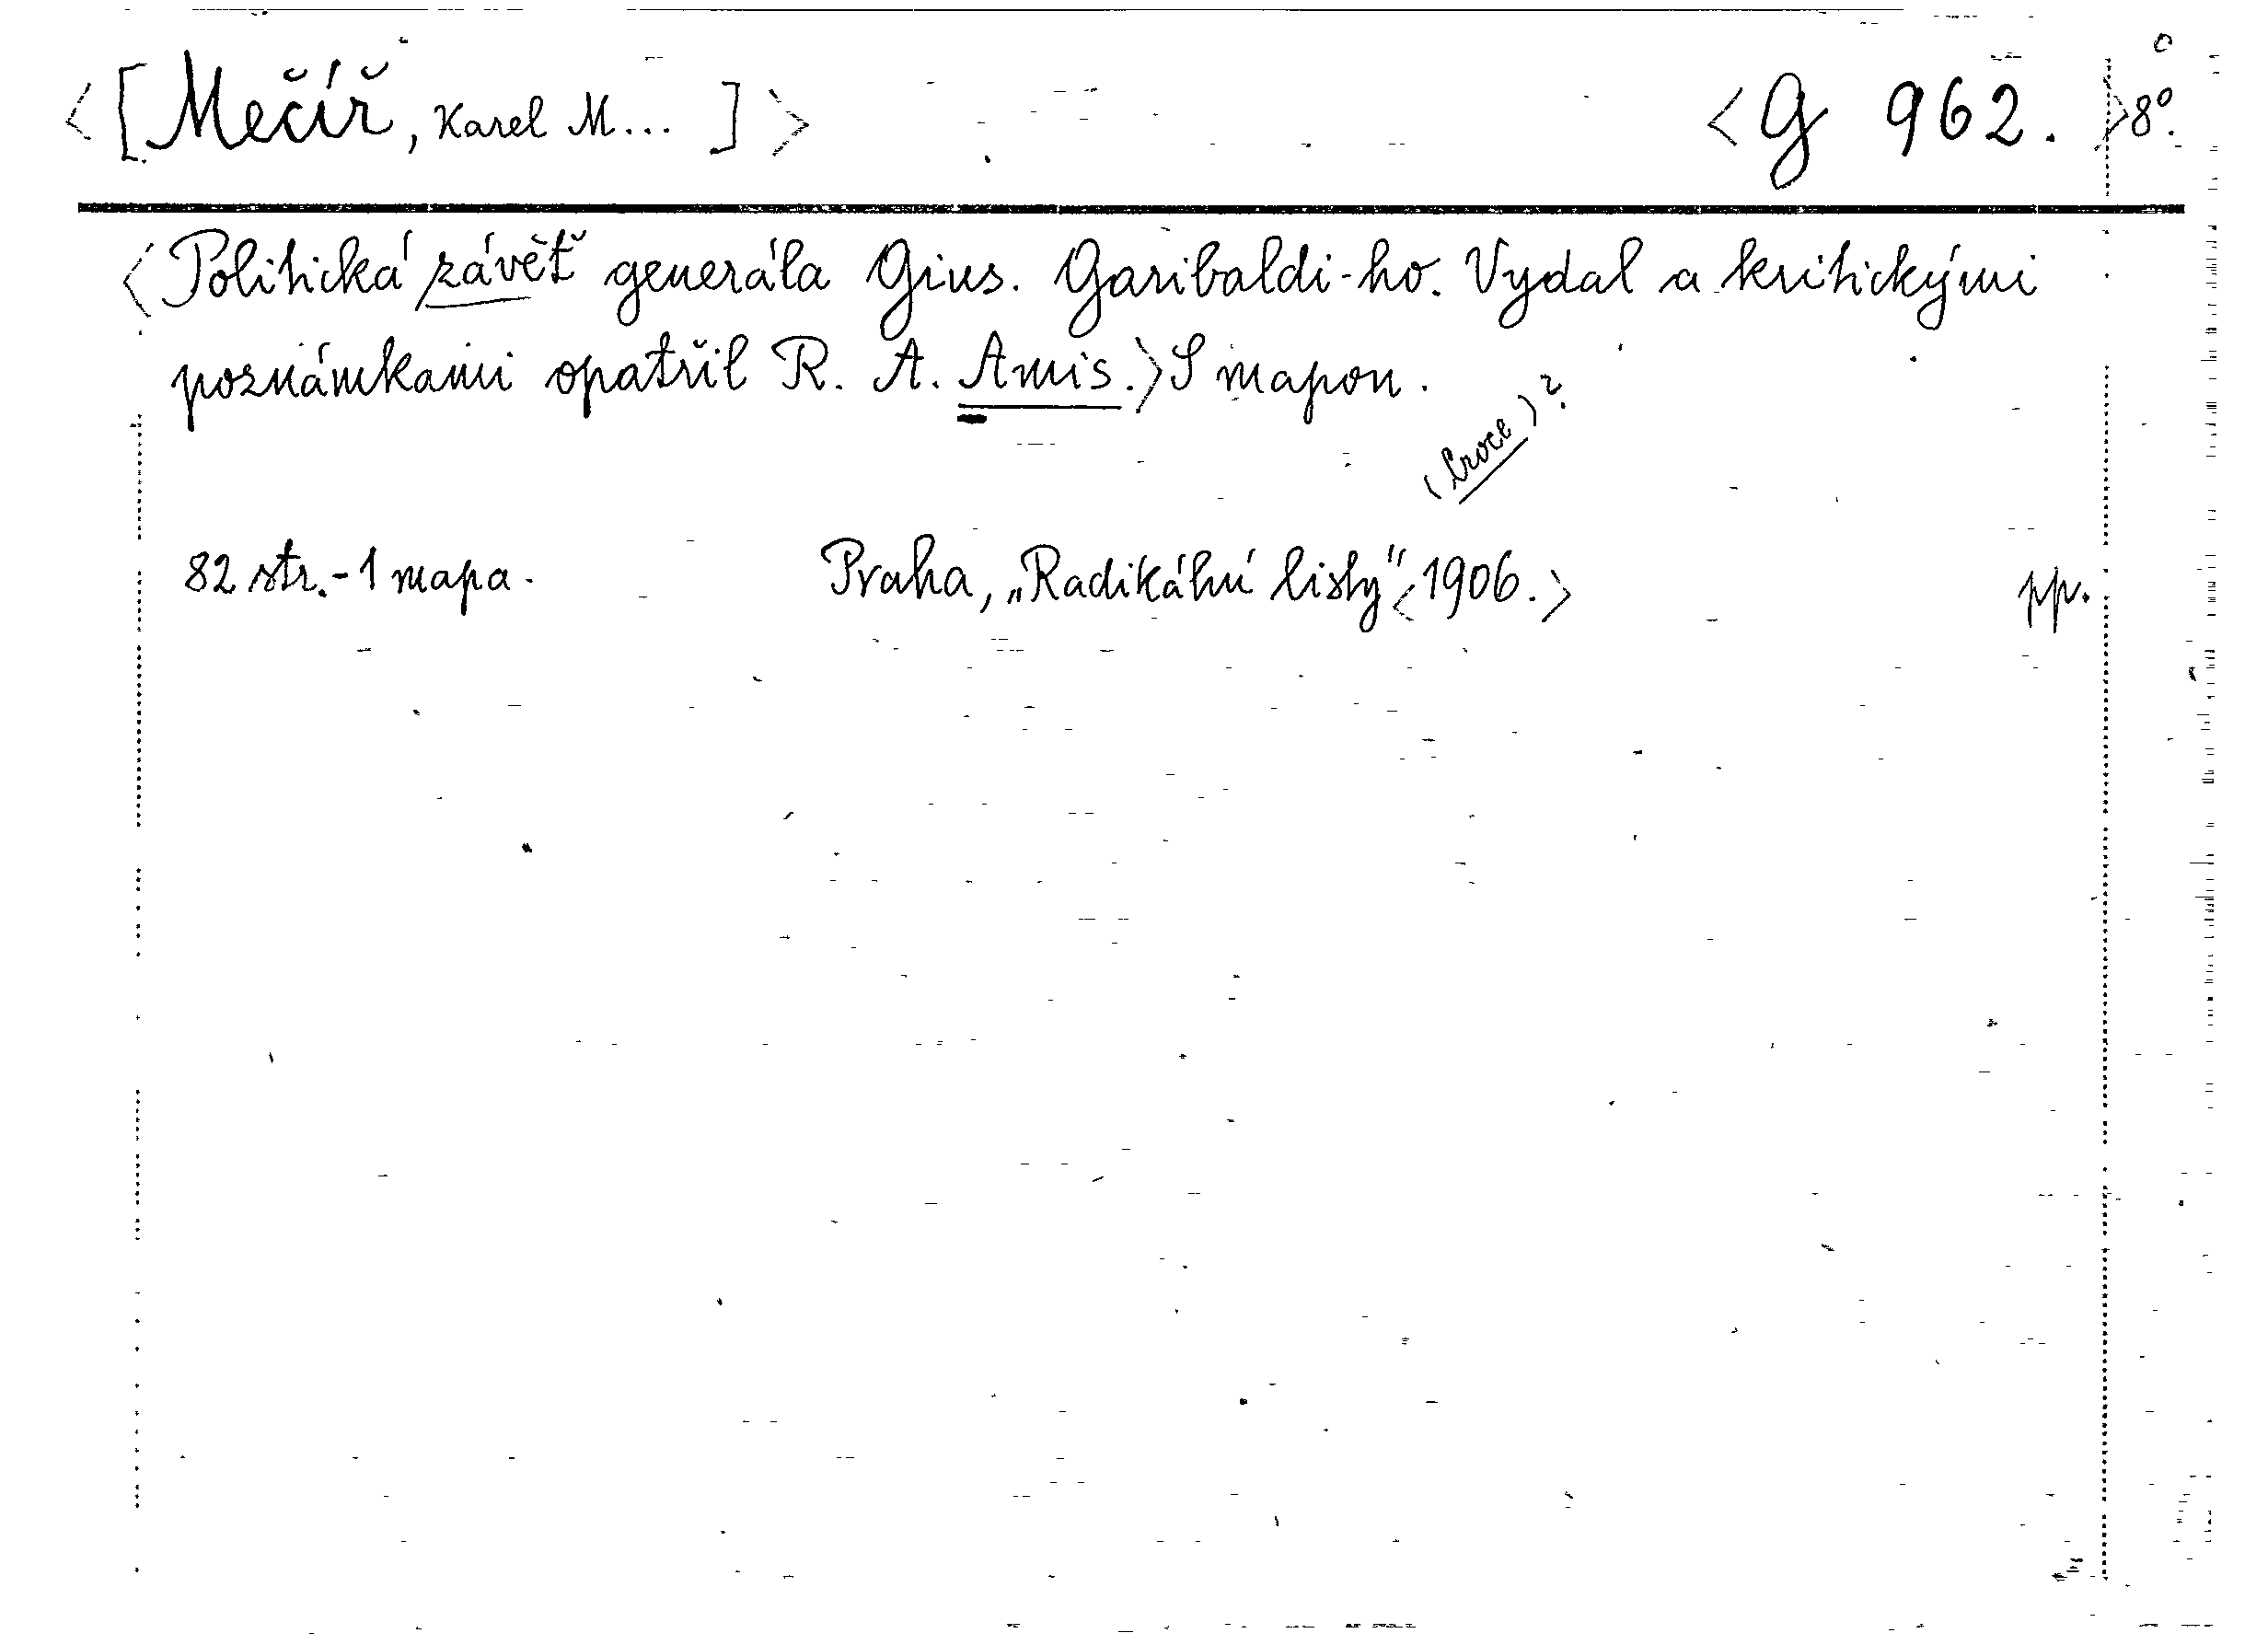 <[Mečíř, Karel M... ]> <G 962. >8°.
<Politická závěť generála Gius. Garibaldi-ho. Vydal a kritickými
poznámkami opatřil R. A. Amis.> S mapou.
(Croce)?
82 str.-1 mapa. Praha, „Radikální listy" <1906.> pp.